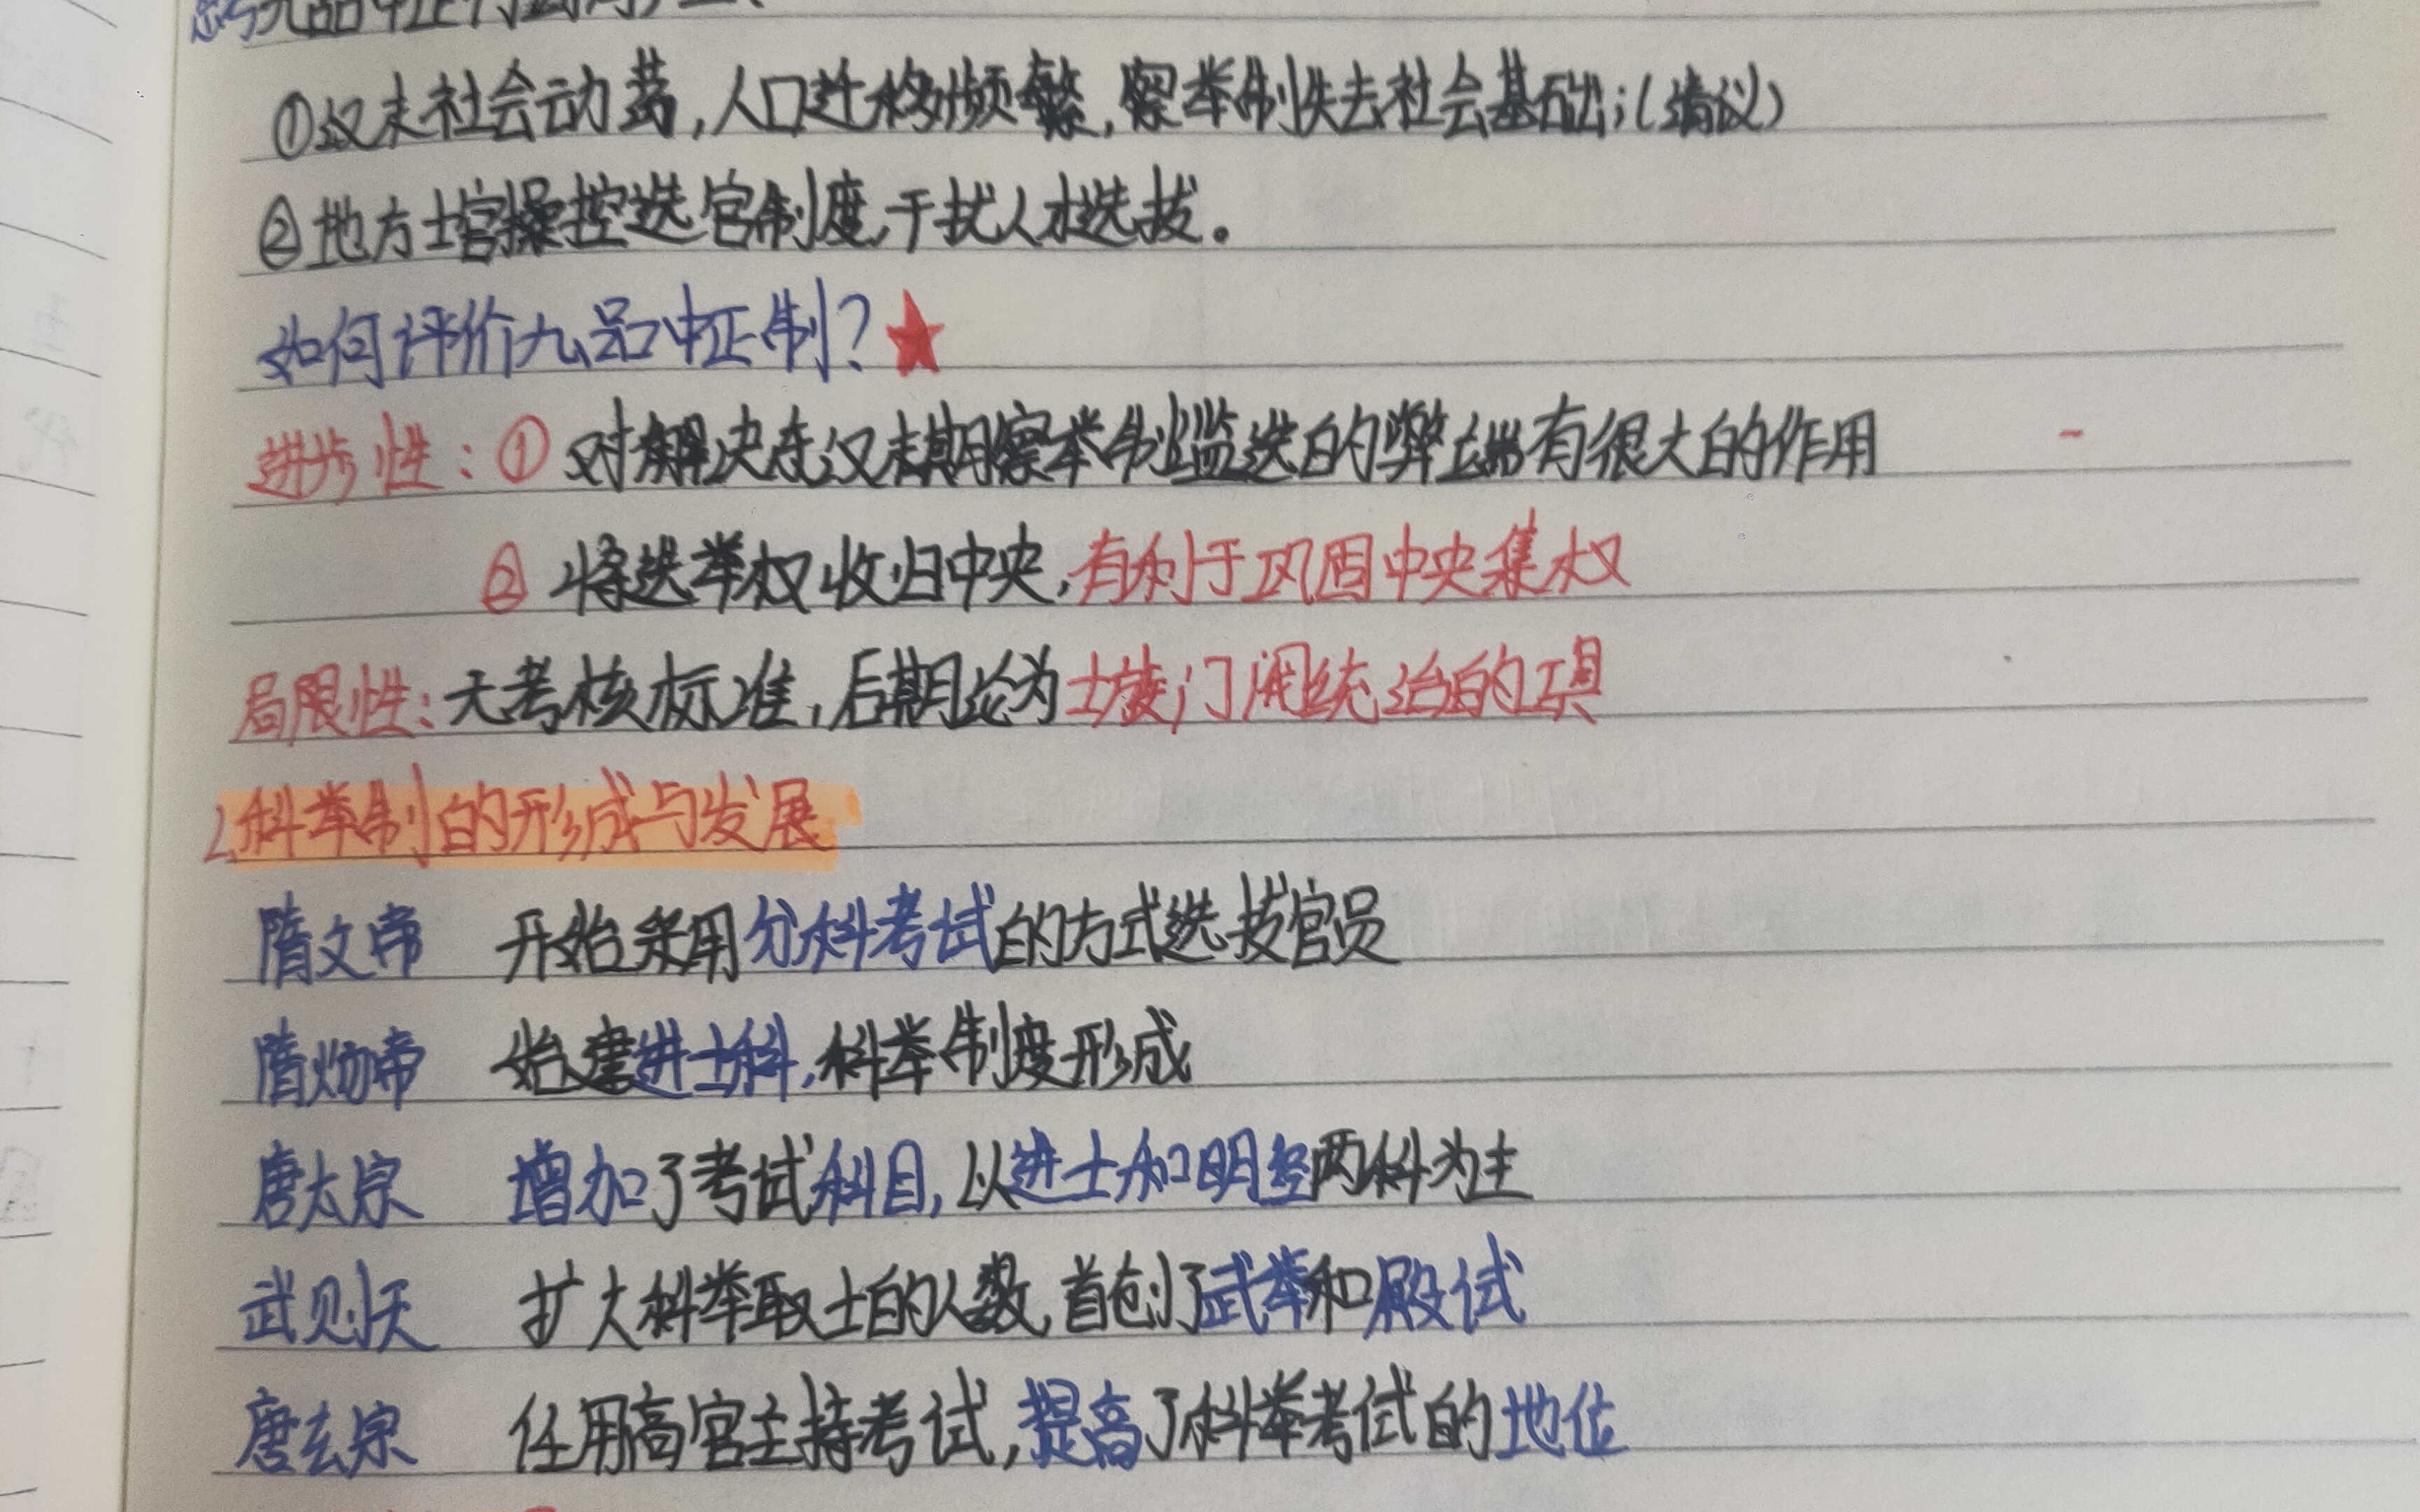 ①汉末社会动荡,人口迁移频繁,察举制失去社会基础;(清议)
②地方士官操控选官制度,干扰人才选拔。
如何评价九品中正制?★
进步性:① 对解决东汉末期察举制滥选的弊端有很大的作用
② 将选举权收归中央,有利于巩固中央集权
局限性:无考核标准,后期沦为士族门阀统治的工具
2.科举制的形成与发展
隋文帝 开始采用分科考试的方式选拔官员
隋炀帝 始建进士科,科举制度形成
唐太宗 增加了考试科目,以进士和明经两科为主
武则天 扩大科举取士的人数,首创了武举和殿试
唐玄宗 任用高官主持考试,提高了科举考试的地位